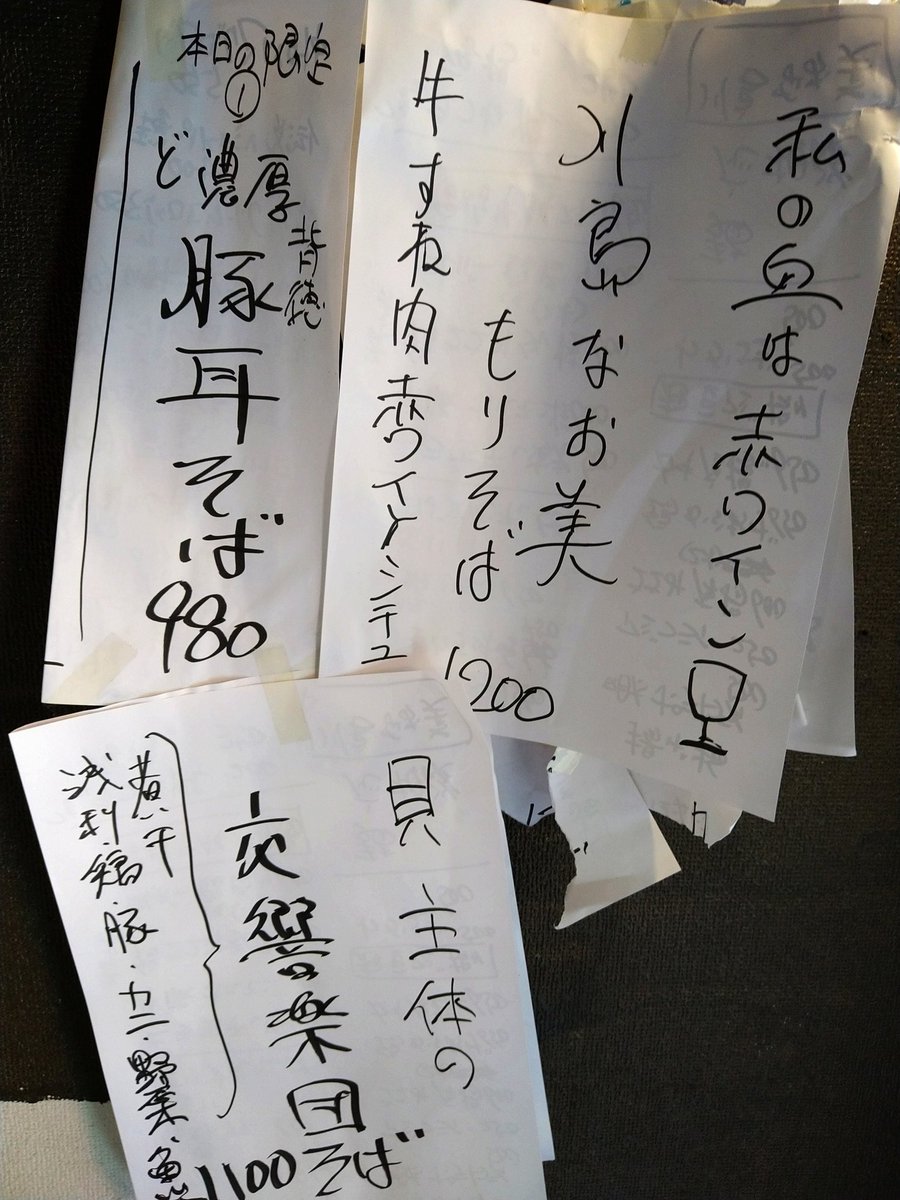 本日の限定
①
ど濃厚
背徳
豚耳そば
980
私の血は赤ワイン
川島なお美
もりそば
1200
牛すね肉赤ワインシチュ
貝主体の
交響楽団そば
1100
煮干
浅利・鶏・豚・カニ・野菜・魚